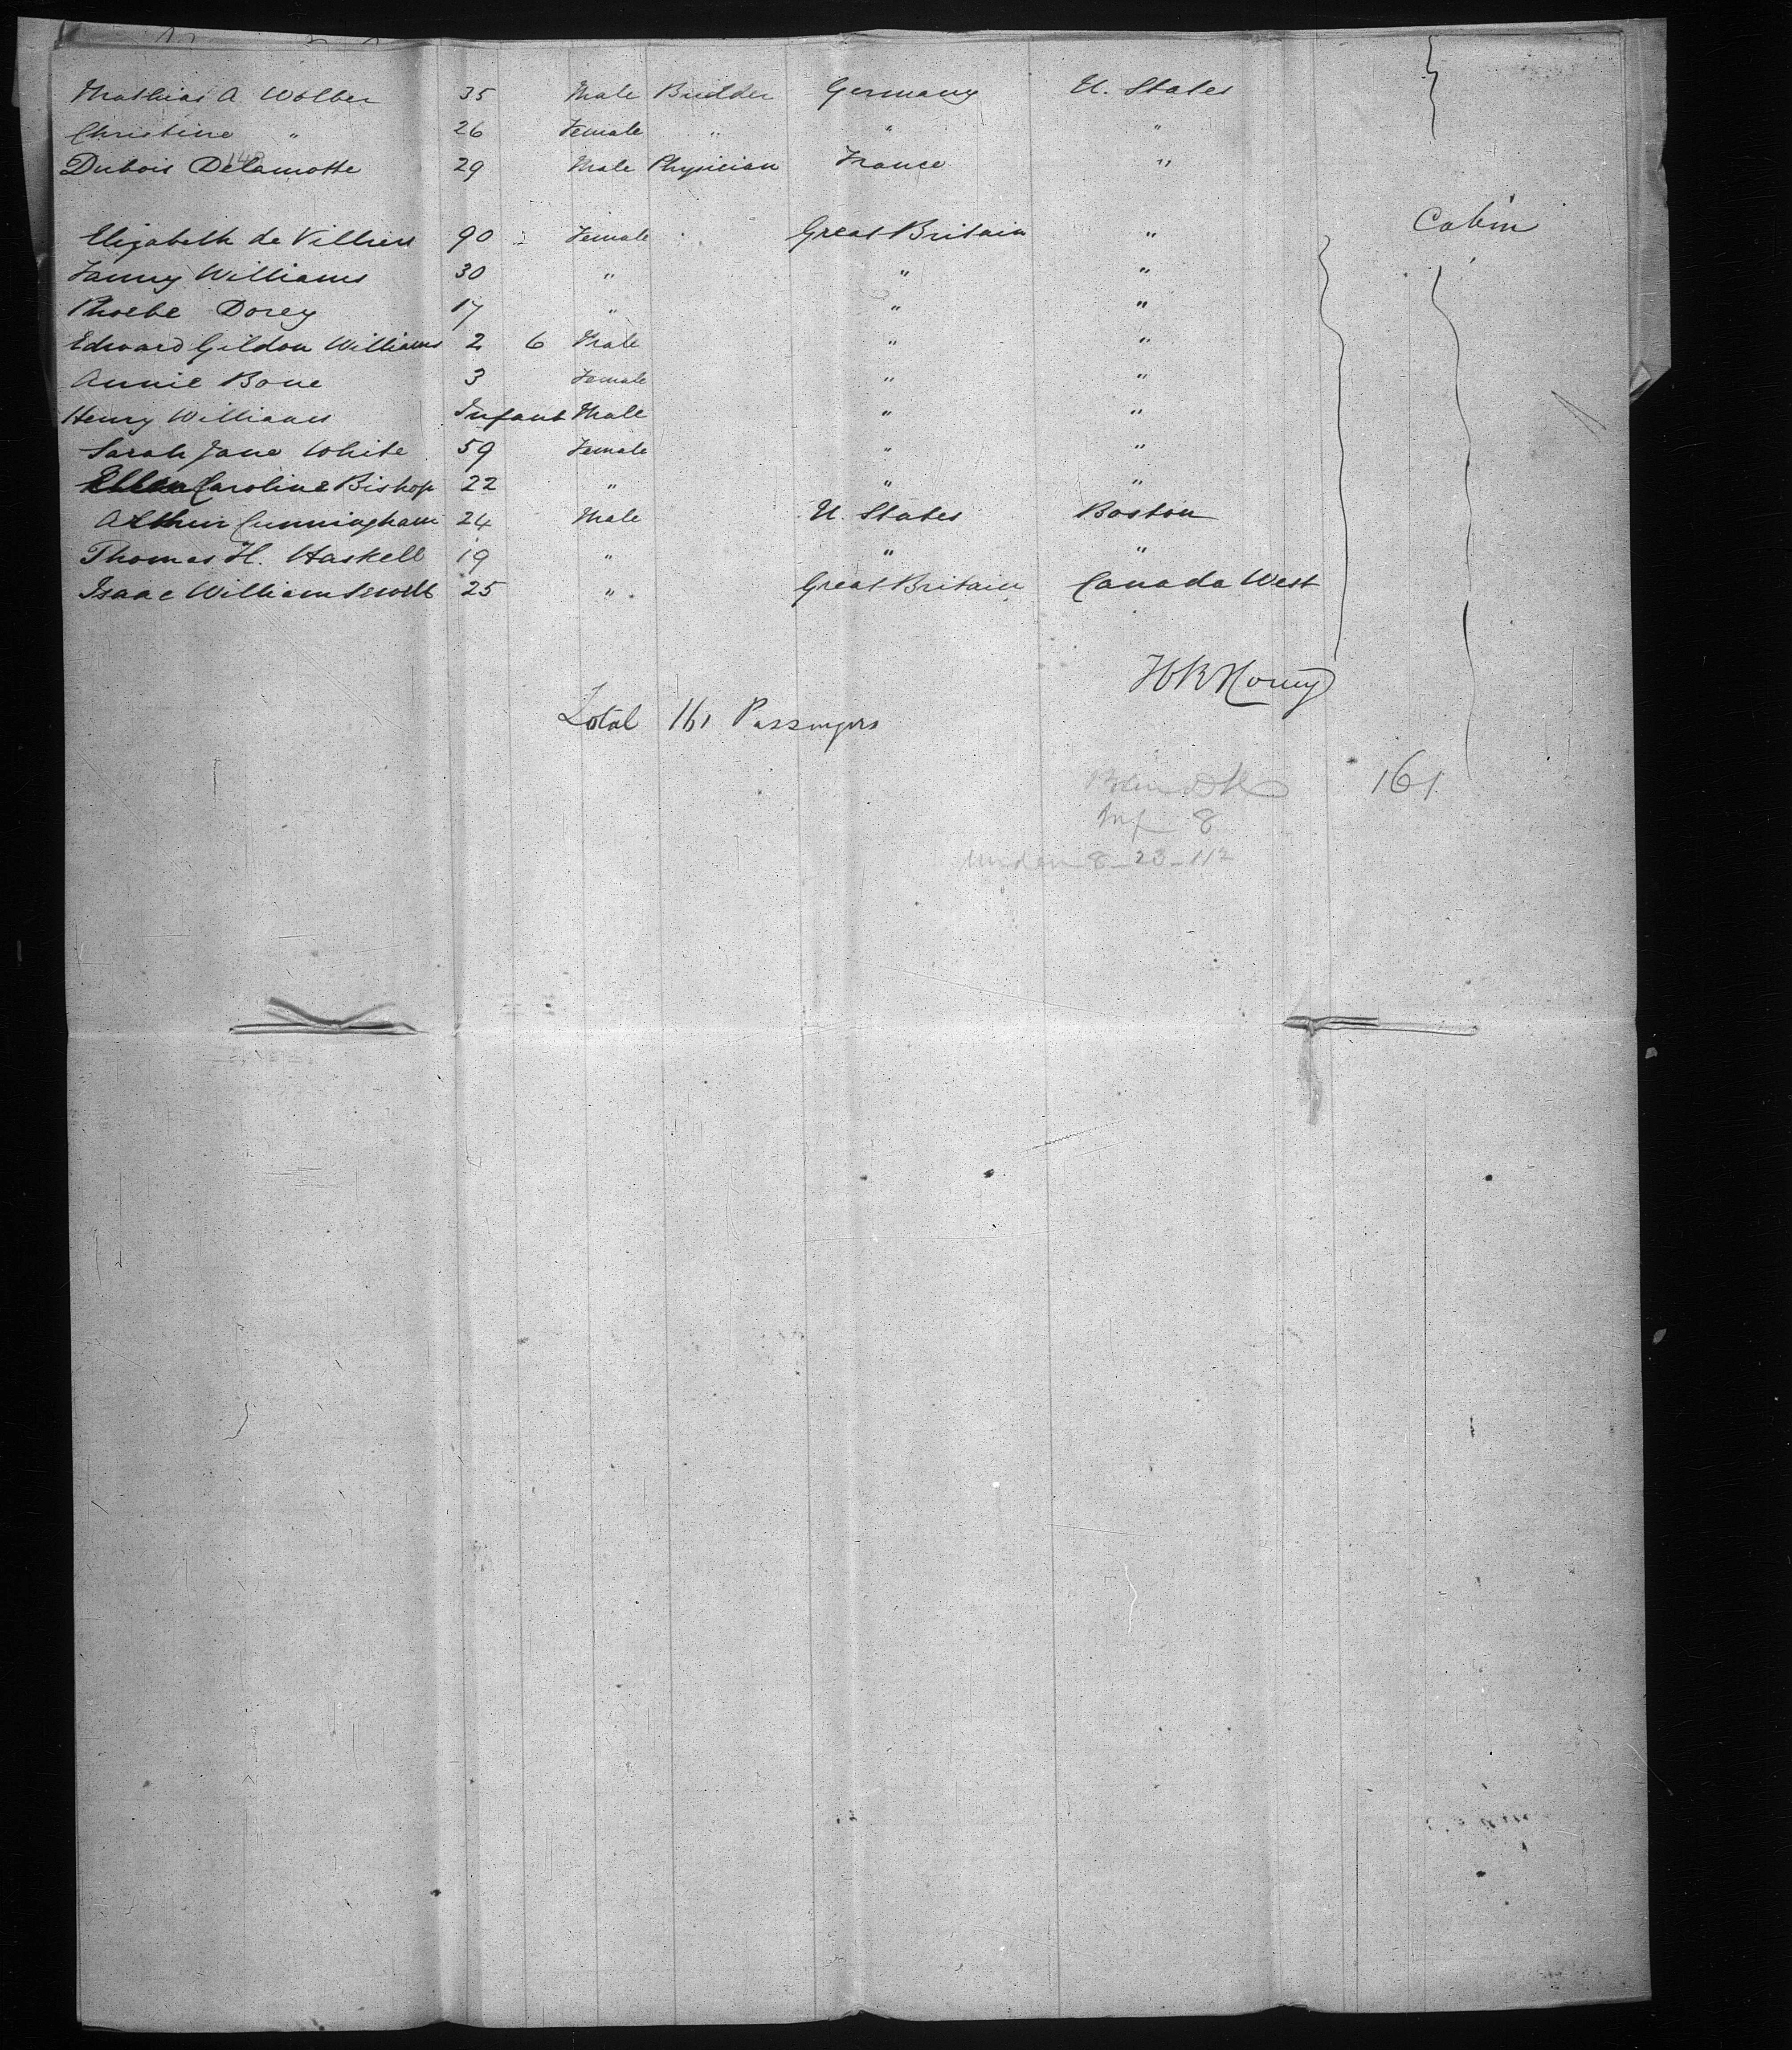 Mathias A Wolber 35 Male Builder Germany U. States
Christine " 26 Female " " "
Dubois Delamotte 29 Male Physician France "
Elizabeth de Villiers 90 Female Great Britain " Cabin
Fanny Williams 30 " " "
Phoebe Dorey 17 " " "
Edward Gildon Williams 2 6 Male " "
Annie Bone 3 Female " "
Henry Williams Infant Male " "
Sarah Jane White 59 Female " "
Ellen Caroline Bishop 22 " " "
Arthur Cunningham 24 Male U. States Boston
Thomas H. Haskell 19 " " "
Isaac William 25 " Great Britain Canada West
Total 161 Passengers
161
Inf 8
Under 8 - 23 - 112